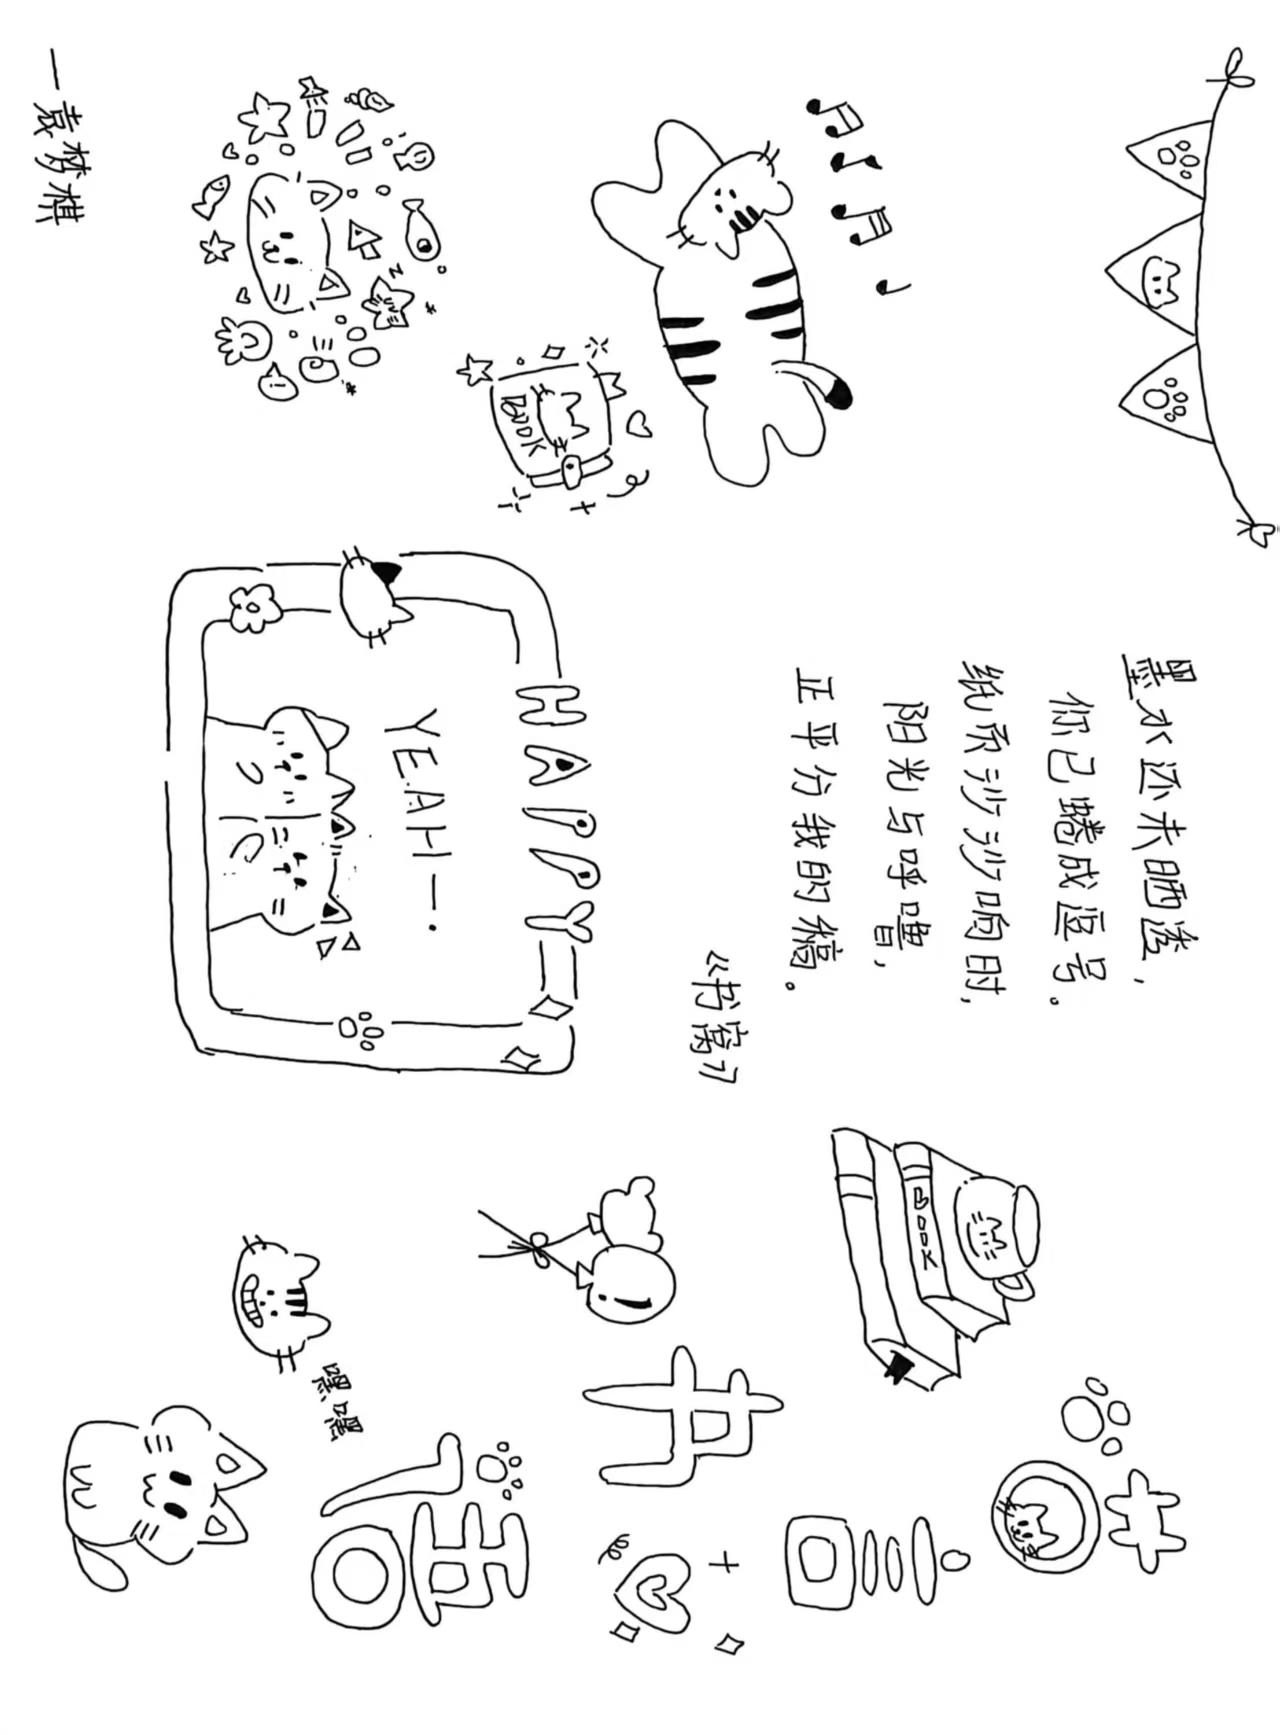 墨水还未晒透，
你已蜷成逗号。
纸沙沙响时，
阳光与呼噜，
正平分我的稿。
《书窝》
BOOK
言
HAPPY
YEAH—.
BOOK
嘿嘿
—袁梦棋